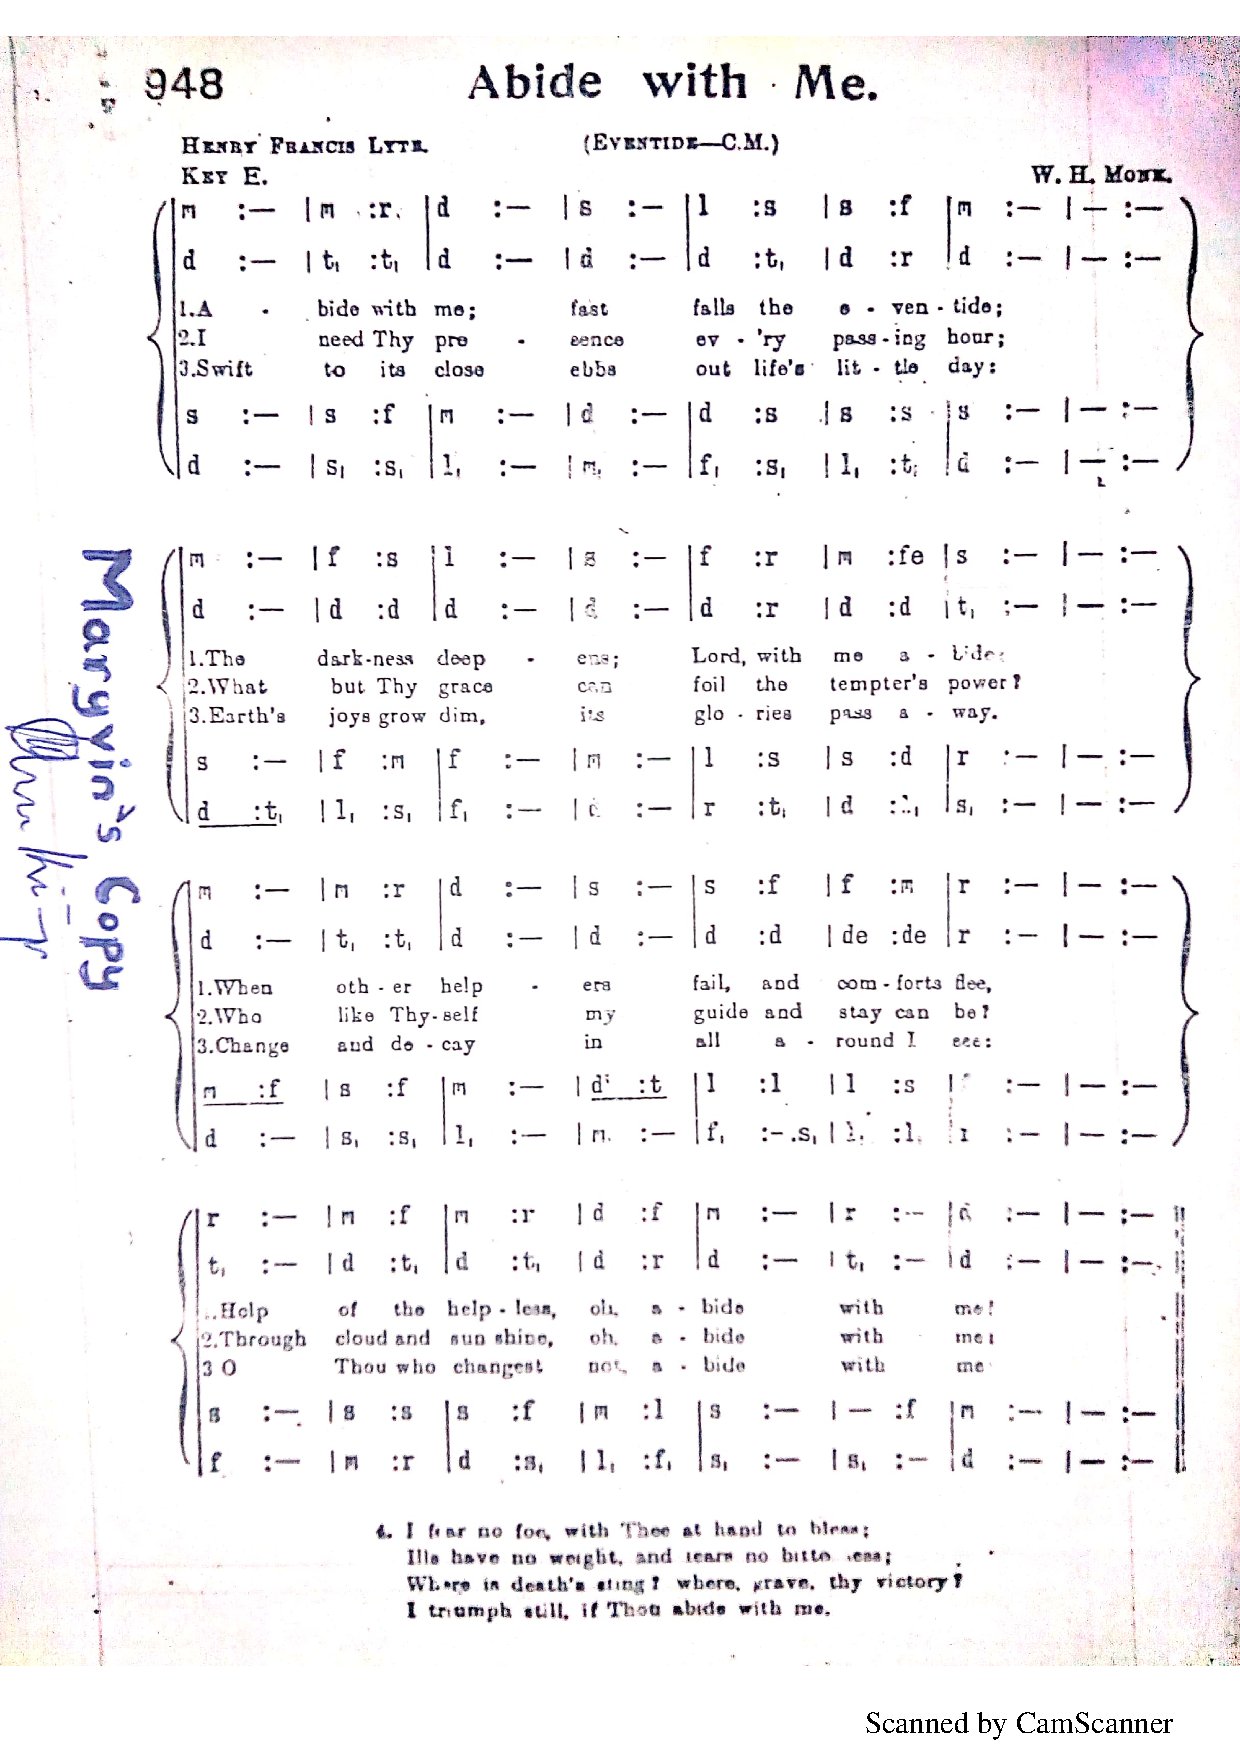 948
Abide with Me.
HENRY FRANCIS LYTE.
(EVENTIDE—C.M.)
KEY E.
W. H. MONK.
m :— | m :r | d :— | s :— | l :s | s :f | m :— | — :—
d :— | t, :t, | d :— | d :— | d :t, | d :r | d :— | — :—
1.A - bide with me; fast falls the e - ven - tide;
2.I need Thy pre - sence ev - 'ry pass - ing hour;
3.Swift to its close ebbs out life's lit - tle day:
s :— | s :f | m :— | d :— | d :s | s :s | s :— | — :—
d :— | s, :s, | l, :— | m, :— | f, :s, | l, :t, | d :— | — :—
m :— | f :s | l :— | s :— | f :r | m :fe | s :— | — :—
d :— | d :d | d :— | d :— | d :r | d :d | t, :— | — :—
1.The dark-ness deep - ens; Lord, with me a - bide:
2.What but Thy grace can foil the tempter's power?
3.Earth's joys grow dim, its glo - ries pass a - way.
s :— | f :m | f :— | m :— | l :s | s :d | r :— | — :—
d :t, | l, :s, | f, :— | d :— | r :t, | d :l, | s, :— | — :—
m :— | m :r | d :— | s :— | s :f | f :m | r :— | — :—
d :— | t, :t, | d :— | d :— | d :d | de :de | r :— | — :—
1.When oth - er help - ers fail, and com - forts flee,
2.Who like Thy-self my guide and stay can be?
3.Change and de - cay in all a - round I see:
m :f | s :f | m :— | d' :t | l :l | l :s | :— | — :—
d :— | s, :s, | l, :— | m, :— | f, :-.s, | l, :l, | r :— | — :—
r :— | m :f | m :r | d :f | m :— | r :— | d :— | — :—
t, :— | d :t, | d :t, | d :r | d :— | t, :— | d :— | — :—
Help of the help - less, oh, a - bide with me!
2.Through cloud and sun shine, oh, a - bide with me!
3 O Thou who changest not, a - bide with me
s :— | s :s | s :f | m :l | s :— | — :f | m :— | — :—
f :— | m :r | d :s, | l, :f, | s, :— | s, :— | d :— | — :—
4. I fear no foe, with Thee at hand to bless;
Ills have no weight, and tears no bitterness;
Where is death's sting? where, grave, thy victory?
I triumph still, if Thou abide with me.
Maryyin's Copy
Scanned by CamScanner